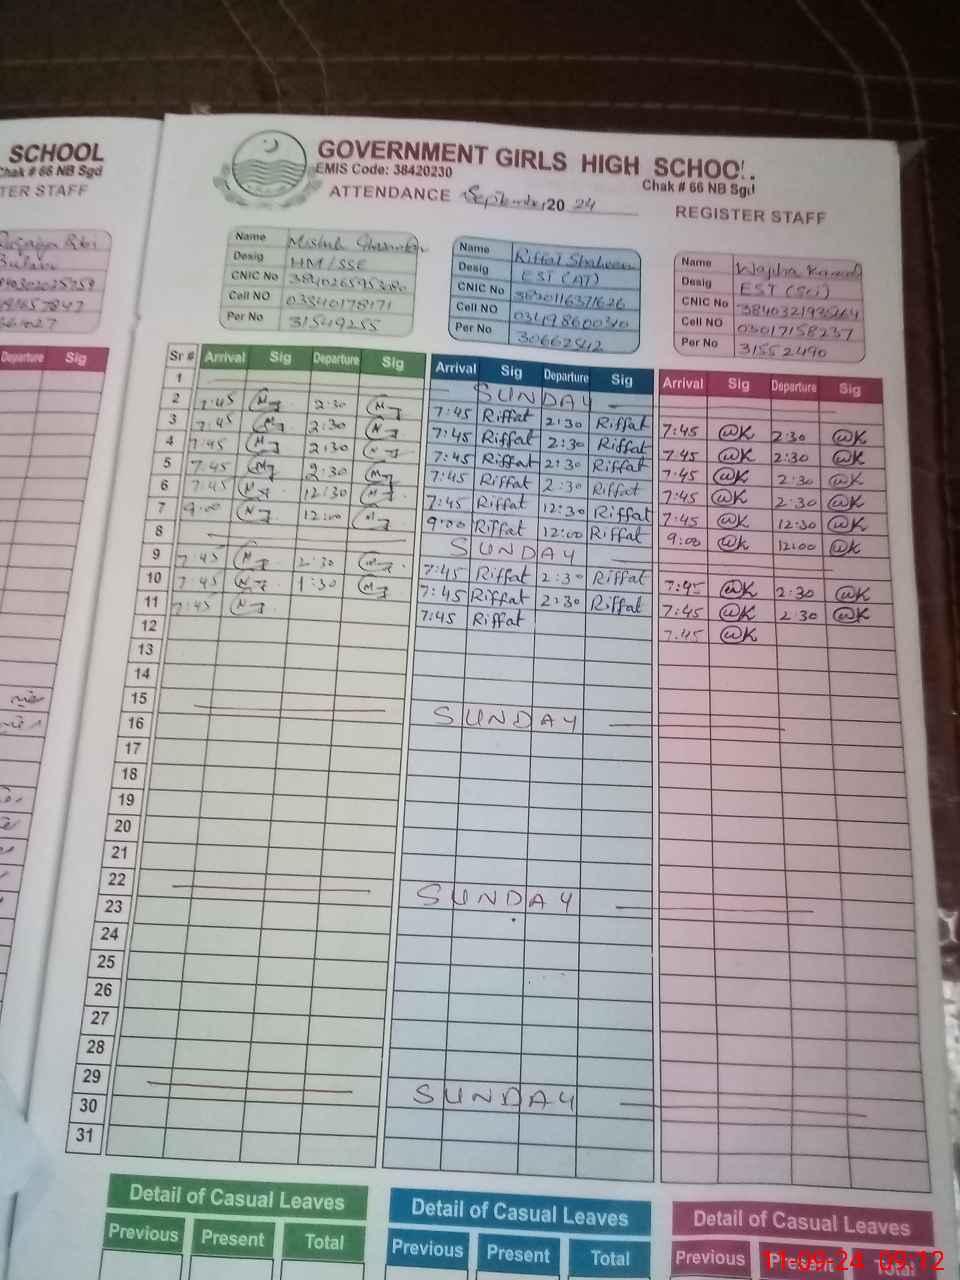 SCHOOL
Chak # 66 NB Sgd
TER STAFF
Departure Sig
GOVERNMENT GIRLS HIGH SCHOOL.
EMIS Code: 38420230
Chak # 66 NB Sgd
ATTENDANCE September 20 24
REGISTER STAFF
Name
Desig HM/SSE
CNIC No
Cell NO 03340178171
Per No 31549255
Name Riffat Shaheen
Desig EST (AT)
CNIC No 3820116371626
Cell NO
Per No 30662512
Name Wajiha Kanwal
Desig EST (Sci)
CNIC No
Cell NO 03017158237
Per No 31552490
Sr # Arrival Sig Departure Sig Arrival Sig Departure Sig Arrival Sig Departure Sig
1 SUNDAY
2 7:45 2:30 7:45 Riffat 2:30 Riffat 7:45 @K 2:30 @K
3 7:45 2:30 7:45 Riffat 2:30 Riffat 7:45 @K 2:30 @K
4 7:45 2:30 7:45 Riffat 2:30 Riffat 7:45 @K 2:30 @K
5 7:45 2:30 7:45 Riffat 2:30 Riffat 7:45 @K 2:30 @K
6 7:45 12:30 7:45 Riffat 12:30 Riffat 7:45 @K 12:30 @K
7 9:00 12:00 9:00 Riffat 12:00 Riffat 9:00 @K 12:00 @K
8 SUNDAY
9 7:45 2:30 7:45 Riffat 2:30 Riffat 7:45 @K 2:30 @K
10 7:45 1:30 7:45 Riffat 2:30 Riffat 7:45 @K 2:30 @K
11 7:45 7:45 Riffat 7:45 @K
12
13
14
15 SUNDAY
16
17
18
19
20
21
22 SUNDAY
23
24
25
26
27
28
29 SUNDAY
30
31
Detail of Casual Leaves Detail of Casual Leaves Detail of Casual Leaves
Previous Present Total Previous Present Total Previous Present Total
11-09-24 09:12